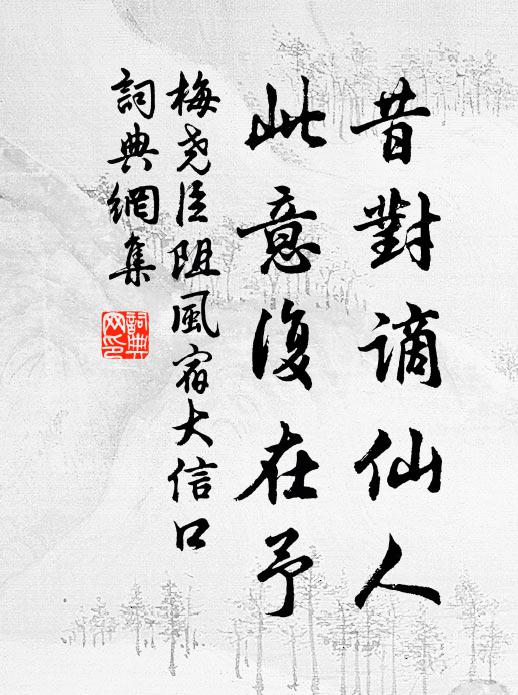 昔對謫仙人
此意復在予
梅堯臣阻風宿大信口
詞典網集
詞典網印